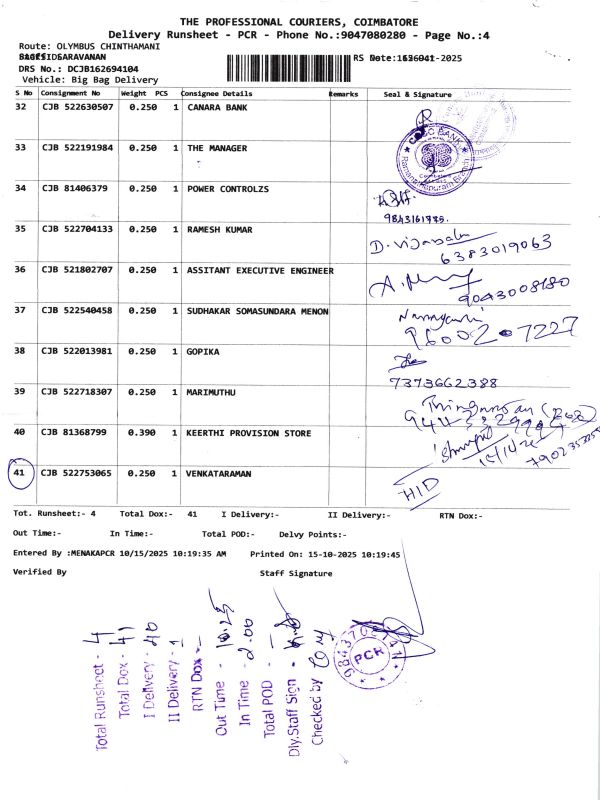 THE PROFESSIONAL COURIERS, COIMBATORE
Delivery Runsheet - PCR - Phone No.:9047080280 - Page No.:4
Route: OLYMBUS CHINTHAMANI
SARAVANAN
RS Date: -2025
DRS No.: DCJB162694104
Vehicle: Big Bag Delivery
S No Consignment No Weight PCS Consignee Details Remarks Seal & Signature
32 CJB 522630507 0.250 1 CANARA BANK
33 CJB 522191984 0.250 1 THE MANAGER
UCO BANK
Ramanathapuram Branch
Coimbatore
34 CJB 81406379 0.250 1 POWER CONTROLZS
9843161775.
35 CJB 522704133 0.250 1 RAMESH KUMAR D. Vijayabalu
6383019063
36 CJB 521802707 0.250 1 ASSITANT EXECUTIVE ENGINEER
9043008180
37 CJB 522540458 0.250 1 SUDHAKAR SOMASUNDARA MENON
96002 07227
38 CJB 522013981 0.250 1 GOPIKA
7373662388
39 CJB 522718307 0.250 1 MARIMUTHU
40 CJB 81368799 0.390 1 KEERTHI PROVISION STORE
41 CJB 522753065 0.250 1 VENKATARAMAN
H/D
Tot. Runsheet:- 4 Total Dox:- 41 I Delivery:- II Delivery:- RTN Dox:-
Out Time:- In Time:- Total POD:- Delvy Points:-
Entered By :MENAKAPCR 10/15/2025 10:19:35 AM Printed On: 15-10-2025 10:19:45
Verified By Staff Signature
Total Runsheet - 4
Total Dox - 41
I Delivery - 40
II Delivery - 1
RTN Dox -
Out Time - 10.25
In Time - 2.00
Total POD -
Dly.Staff Sign -
Checked by
PCR